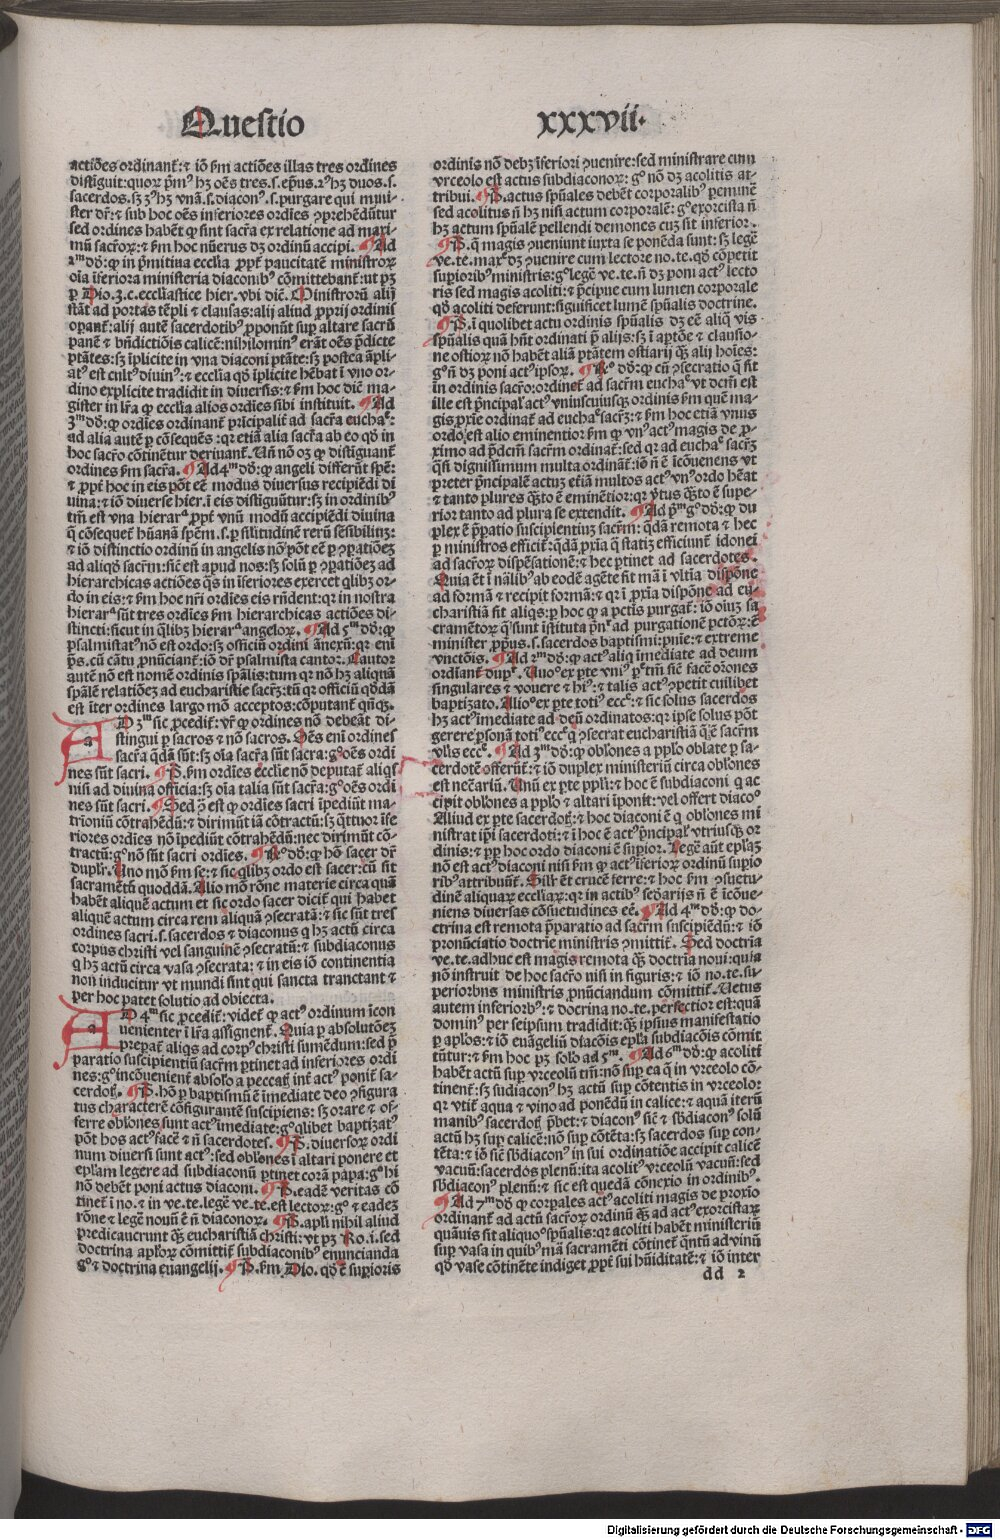 Questio
xxxvii.
actiões ordinant᷑: ⁊ iõ ẜm actiões illas tres ordines
distiguit: quoꝝ p̃mꝰ hꝫ oẽs tres. s. ep̃us. 2ꝰ hꝫ duos. s.
sacerdos. sꝫ 3ꝰ hꝫ vnã. s. diaconꝰ. s. purgare qui mini-
ster dr̃: ⁊ sub hoc oẽs inferiores ordĩes ꝯprehẽdũtur
sed ordines habẽt ꝙ sint sacr̃a ex relatione ad maxi
mũ sacr̃oꝝ: ⁊ ẜm hoc nũerus dꝫ ordinũ accipi. Ad
2ᵐ dõꝫ ꝙ in p̃mitina eccl̃ia ꝓpt᷑ paucitatẽ ministroꝝ
oĩa ĩferiora ministeria diaconibꝰ cõmittebant᷑: ut pꝫ
ꝑ Dio. 3. c. eccl̃iastice hier. vbi diẽ. Ministroꝝ alij
stãt ad portas tẽpli ⁊ clausas: alij aliud ꝓprij ordinis
oꝑant᷑: alij autẽ sacerdotibꝰ ꝓponũt suꝑ altare sacrũ
panẽ ⁊ bñdictiõis calicẽ: nihilominꝰ erãt oẽs p̃dicte
ptãtes: sꝫ ĩplicite in vna diaconi ptãte: sꝫ postea ãpli-
atꝰ est cultꝰ diuinꝰ: ⁊ eccl̃ia qd̃ ĩplicite hẽbat ĩ vno or-
dino explicite tradidit in diuersis: ⁊ ẜm hoc diẽ ma-
gister in lr̃a ꝙ eccl̃ia alios ordĩes sibi instituit. Ad
3ᵐ dõꝫ: ꝙ ordĩes ordinant᷑ p̃ncipalit᷑ ad sacr̃a euchaᶜ:
ad alia autẽ ꝑ cõseq̃ns: qꝛ etiã alia sacr̃a ab eo qd̃ in
hoc sacr̃o cõtinẽtur deriuant᷑. Uñ nõ oꝫ ꝙ distiguant᷑
ordines ẜm sacr̃a. Ad 4ᵐ dõꝫ: ꝙ angeli differũt spẽ:
⁊ ꝓpt᷑ hoc in eis põt eẽ modus diuersus recipiẽdi di
uina: ⁊ iõ diuerse hier. ĩ eis distiguũtur: sꝫ in ordinibꝰ
tm̃ est vna hierarᵃ ꝓpt᷑ vnũ modũ accipiẽdi diuina
q̃ cõseq̃t᷑ hũanã spẽm. s. ꝑ sil̃itudinẽ rerũ sẽsibiliũ:
⁊ iõ distinctio ordinũ in angelis nõ põt eẽ ꝑ ꝯꝑatiõeꝫ
ad aliqd̃ sacr̃m: sic̃ est apud nos: sꝫ solũ ꝑ ꝯꝑatiõeꝫ ad
hierarchicas actiões q̃s in ĩferiores exercet qlibꝫ or-
do in eis: ⁊ ẜm hoc nr̃i ordĩes eis rñdent: qꝛ in nostra
hierarᵃ sũt tres ordĩes ẜm hierarchicas actiões di-
stincti: sicut in q̃libꝫ hierarᵃ angeloꝝ. Ad 5ᵐ dõꝫ: ꝙ
psalmistatꝰ nõ est ordo: sꝫ officiũ ordini ãnexũ: qꝛ eni
p̃s. cũ cãtu ꝓnũciant᷑: iõ dr̃ psalmista cantor. Cantor
autẽ nõ est nomẽ ordinis sp̃alis: tum qꝛ nõ hꝫ aliquã
sp̃alẽ relatiõeꝫ ad eucharistie sacr̃ꝫ: tũ qꝛ officiũ qd̃dã
est ĩter ordines largo mõ acceptos: cõputant᷑ qñqꝫ.
AD 3ᵐ sic ꝓcedit᷑: vr̃ ꝙ ordines nõ debeãt di-
stingui ꝑ sacros ⁊ nõ sacros. Oẽs eni ordines
sacr̃a q̃dã sũt: sꝫ oĩa sacr̃a sũt sacra: gͦ oẽs ordi
nes sũt sacri. P. ẜm ordĩes eccl̃ie nõ deputat᷑ aliqs
nisi ad diuina officia: sꝫ oĩa talia sũt sacr̃a: gͦ oẽs ordi
nes sũt sacri. Sed ꝯ̃ est ꝙ ordĩes sacri ĩpediũt ma-
trioniũ cõtrahẽdũ: ⁊ dirimũt iã cõtractũ: sꝫ q̃ttuor ĩfe
riores ordĩes nõ ĩpediũt cõtrahẽdũ: nec dirimũt cõ-
tractũ: gͦ nõ sũt sacri ordĩes. Rͦ dõꝫ: ꝙ hõ sacer dr̃
duplr̃. Uno mõ ẜm se: ⁊ sic qlibꝫ ordo est sacer: cũ sit
sacramẽtũ quoddã. Alio mõ rõne materie circa quã
habẽt aliquẽ actum et sic ordo sacer dicit᷑ qui habet
aliquẽ actum circa rem aliquã ꝯsecratã: ⁊ sic sũt tres
ordines sacri. s. sacerdos ⁊ diaconus q̃ hꝫ actũ circa
corpus christi vel sanguinẽ ꝯsecratũ: ⁊ subdiaconus
q̃ hꝫ actũ circa vasa ꝯsecrata: ⁊ in eis iõ continentia
non inducitur vt mundi sint qui sancta tranctant ⁊
per hoc patet solutio ad obiecta.
AD 4ᵐ sic ꝓcedit᷑: videt᷑ ꝙ actꝰ ordinum ĩcon
uenienter ĩ lr̃a assignent᷑. Quia ꝑ absolutõeꝫ
p̃reꝑat᷑ aliqs ad corpꝰ christi sumẽdum: sed p̃
paratio suscipientiũ sacr̃m ꝑtinet ad inferiores ordi
nes: gͦ incõuenient᷑ absol̃o a peccat᷑ int᷑ actꝰ ponit᷑ sa-
cerdot᷑. P. hõ ꝑ baptismũ ẽ ĩmediate deo ꝯfigura
tus characterẽ cõfigurantẽ suscipiens: sꝫ orare ⁊ of-
ferre obl̃ones sunt actꝰ ĩmediate: gͦ qlibet baptiꝫatꝰ
põt hos actꝰ facẽ ⁊ ñ sacerdotes. P. diuersoꝝ ordi
num diuersi sunt actꝰ: sed obl̃ones ĩ altari ponere et
ep̃lam legere ad subdiaconũ ꝑtinet corã papa: gͦ hi
nõ debẽt poni actus diaconi. P. eadẽ veritas cõ
tinet᷑ ĩ no. ⁊ in ve. te. legẽ ve. te. est lectoꝝ: gͦ ⁊ eadeꝫ
rõne ⁊ legẽ nouũ ẽ ñ diaconoꝝ. P. apl̃i nihil aliud
predicaucrunt qꝫ eucharistiã christi: vt pꝫ Ro. i. sed
doctrina apl̃oꝝ cõmittit᷑ subdiaconibꝰ enuncianda
gͦ ⁊ doctrina euangelij. P. ẜm Dio. qd̃ ẽ suꝑioris
ordinis nõ debꝫ ĩferiori ꝯuenire: sed ministrare cum
vrceolo est actus subdiaconoꝝ: gͦ nõ dꝫ acolitis at-
tribui. P. actus sp̃uales debẽt corporalibꝰ p̃eminẽ
sed acolitus ñ hꝫ nisi actum corporalẽ: gͦ exorcista ñ
hꝫ actum sp̃ualẽ pellendi demones cuꝫ sit inferior.
P. q̃ magis ꝯueniunt iuxta se ponẽda sunt: sꝫ legẽ
ve. te. maxᵉ dꝫ ꝯuenire cum lectore no. te. qd̃ cõpetit
suꝑioribꝰ ministris: gͦ legẽ ve. te. ñ dꝫ poni actꝰ lecto
ris sed magis acoliti: ⁊ p̃cipue cum lumen corporale
qd̃ acoliti deferunt: significet lumẽ sp̃ualis doctrine.
P. ĩ quolibet actu ordinis sp̃ualis dꝫ eẽ aliq̃ vis
sp̃ualis quã hñt ordinati p̃ alijs: sꝫ ĩ aptõe ⁊ clausio-
ne ostioꝝ nõ habẽt aliã ptãtem ostiarij qꝫ alij hoĩes:
gͦ ñ dꝫ poni actꝰ ipsoꝝ. Rͦ dõꝫ: ꝙ cũ ꝯsecratio q̃ fit
in ordinis sacr̃o: ordinet᷑ ad sacr̃m euchaᶜ vt dcm̃ est
ille est p̃ncipal̃ actꝰ vniuscuiusqꝫ ordinis ẜm quẽ ma-
gis ꝓxĩe ordinat᷑ ad euchaᶜ sacr̃ꝫ: ⁊ ẜm hoc etiã vnus
ordo est alio eminentior ẜm ꝙ vnꝰ actꝰ magis de ꝓ-
ximo ad p̃dcm̃ sacr̃m ordinat᷑: sed qꝛ ad euchaᶜ sacr̃ꝫ
q̃si dignissimum multa ordinãt᷑: iõ ñ ẽ ĩcõuenens vt
preter p̃ncipalẽ actuꝫ etiã multos actꝰ vnꝰ ordo hẽat
⁊ tanto plures q̃sto ẽ eminẽtior: qꝛ v̾tus q̃sto ẽ supe-
rior tanto ad plura se extendit. Ad p̃ᵐ gͦ dõꝫ: ꝙ du
plex ẽ p̃ꝑatio suscipientiuꝫ sacr̃m: q̃dã remota ⁊ hec
ꝑ ministros efficit᷑: q̃dã ꝓxĩa q̃ statiꝫ efficiunt᷑ idonei
ad sacr̃oꝝ dispẽsationẽ: ⁊ hec ꝑtinet ad sacerdotes.
Quia ẽt ĩ nãl̃ibꝰ ab eodẽ agẽte fit mã ĩ vltĩa dispõne
ad formã ⁊ recipit formã: ⁊ qꝛ ĩ ꝓxĩa dispõne ad eu-
charistiã fit aliqs: ꝑ hoc ꝙ a pctĩs purgat᷑: iõ oĩuꝫ sa
cramẽtoꝝ q̃ sunt ĩstituta p̃nʳ ad purgationẽ pctõꝝ: ẽ
minister ꝓpꝰus. s. sacerdos baptismi: pnĩe: ⁊ extreme
vnctõis. Ad 2ᵐ dõꝫ: ꝙ actꝰ aliq̃ ĩmediate ad deum
ordiant᷑ dupᶜ. Unoͦ ex ꝑte vniꝰ ꝑtm̃: sic̃ facẽ or̃ones
singulares ⁊ vouere ⁊ hiꝰ: ⁊ talis actꝰ ꝯpetit cuilibet
baptizato. Alioͦ ex ꝑte totiꝰ eccᵉ: ⁊ sic solus sacerdos
hꝫ actꝰ ĩmediate ad deũ ordinatos: qꝛ ipse solus põt
gerere ꝑsonã totiꝰ eccᵉ q̃ ꝯsecrat eucharistiã q̃ ẽ sacr̃m
vl̃is eccᵉ. Ad 3ᵐ dõꝫ: ꝙ obl̃ones a ppl̃o oblate ꝑ sa-
cerdotẽ offerũt᷑: ⁊ iõ duplex ministeriũ circa obl̃ones
est necẽariũ. Unũ ex ꝑte ppl̃i: ⁊ hoc ẽ subdiaconi q̃ ac
cipit obl̃ones a ppl̃o ⁊ altari ĩponit᷑: vel offert diacoͦ
Aliud ex ꝑte sacerdot᷑: ⁊ hoc diaconi ẽ q̃ obl̃ones mi
nistrat ip̃i sacerdoti: ⁊ ĩ hoc ẽ actꝰ p̃ncipal̃ vtriusqꝫ or
dinis: ⁊ ꝓꝑ hoc ordo diaconi ẽ suꝑior. Legẽ aũt epl̃aꝫ
nõ est actꝰ diaconi nisi ẜm ꝙ actꝰ ĩferioꝝ ordinũ suꝑio
ribꝰ attribuũt᷑. Sil̃r ẽt crucẽ ferre: ⁊ hoc ẜm ꝯsuetu-
dinẽ aliquaꝝ eccl̃iaꝝ: qꝛ in actibꝰ secõarijs ñ ẽ ĩcõue-
niens diuersas cõsuetudines eẽ. Ad 4ᵐ dõꝫ: ꝙ do-
ctrina est remota p̃paratio ad sacr̃m suscipiẽdũ: ⁊ iõ
pronũciatio doctrie ministris ꝯmittit᷑. Sed doctria
ve. te. adhuc est magis remota qꝫ doctria noui: quia
nõ instruit de hoc sacr̃o nisi in figuris: ⁊ iõ no. te. su-
perioribus ministris ꝓnũciandum cõmittit᷑. Uetus
autem inferioribꝰ: ⁊ docrina no. te. perfectior est: quã
dominꝰ per seipsum tradidit: qꝫ ipsius manifestatio
ꝑ aplos: ⁊ iõ euãgeliũ diacõis epl̃a subdiacõis cõmit
tũtur: ⁊ ẜm hoc pꝫ solõ ad 5ᵐ. Ad 6ᵐ dõꝫ: ꝙ acoliti
habẽt actũ suꝑ vrceolũ tm̃: nõ suꝑ ea q̃ in vrceolo cõ-
tinent᷑: sꝫ sudiaconꝰ hꝫ actũ suꝑ cõtentis in vrceolo:
qꝛ vtit᷑ aqua ⁊ vino ad ponẽdũ in calice: ⁊ aquã iterũ
manibꝰ sacerdot᷑ p̃bet: ⁊ diaconꝰ sic̃ ⁊ sb̃diaconꝰ solũ
actũ hꝫ suꝑ calicẽ: nõ suꝑ cõtẽta: sꝫ sacerdos suꝑ con-
tẽta: ⁊ iõ sic̃ sb̃diaconꝰ in sui ordinatiõe accipit calicẽ
vacuũ: sacerdos plenũ: ita acolitꝰ vrceolũ vacuũ: sed
sb̃diaconꝰ plenũ: ⁊ sic est quedã cõnexio in ordinibꝰ.
Ad 7ᵐ dõꝫ ꝙ corpales actꝰ acoliti magis de ꝓxĩo
ordinant᷑ ad actũ sacr̃oꝝ ordinũ qꝫ ad actꝰ exorcistaꝝ
quãuis sit aliquoͦ sp̃ualis: qꝛ acoliti habẽt ministeriũ
suꝑ vasa in quibꝰ mã sacramẽti cõtinet᷑ q̃ntũ ad vinũ
qd̃ vase cõtinẽte indiget ꝓpt᷑ sui hũiditatẽ: ⁊ iõ inter
dd 2
Digitalisierung gefördert durch die Deutsche Forschungsgemeinschaft - DFG